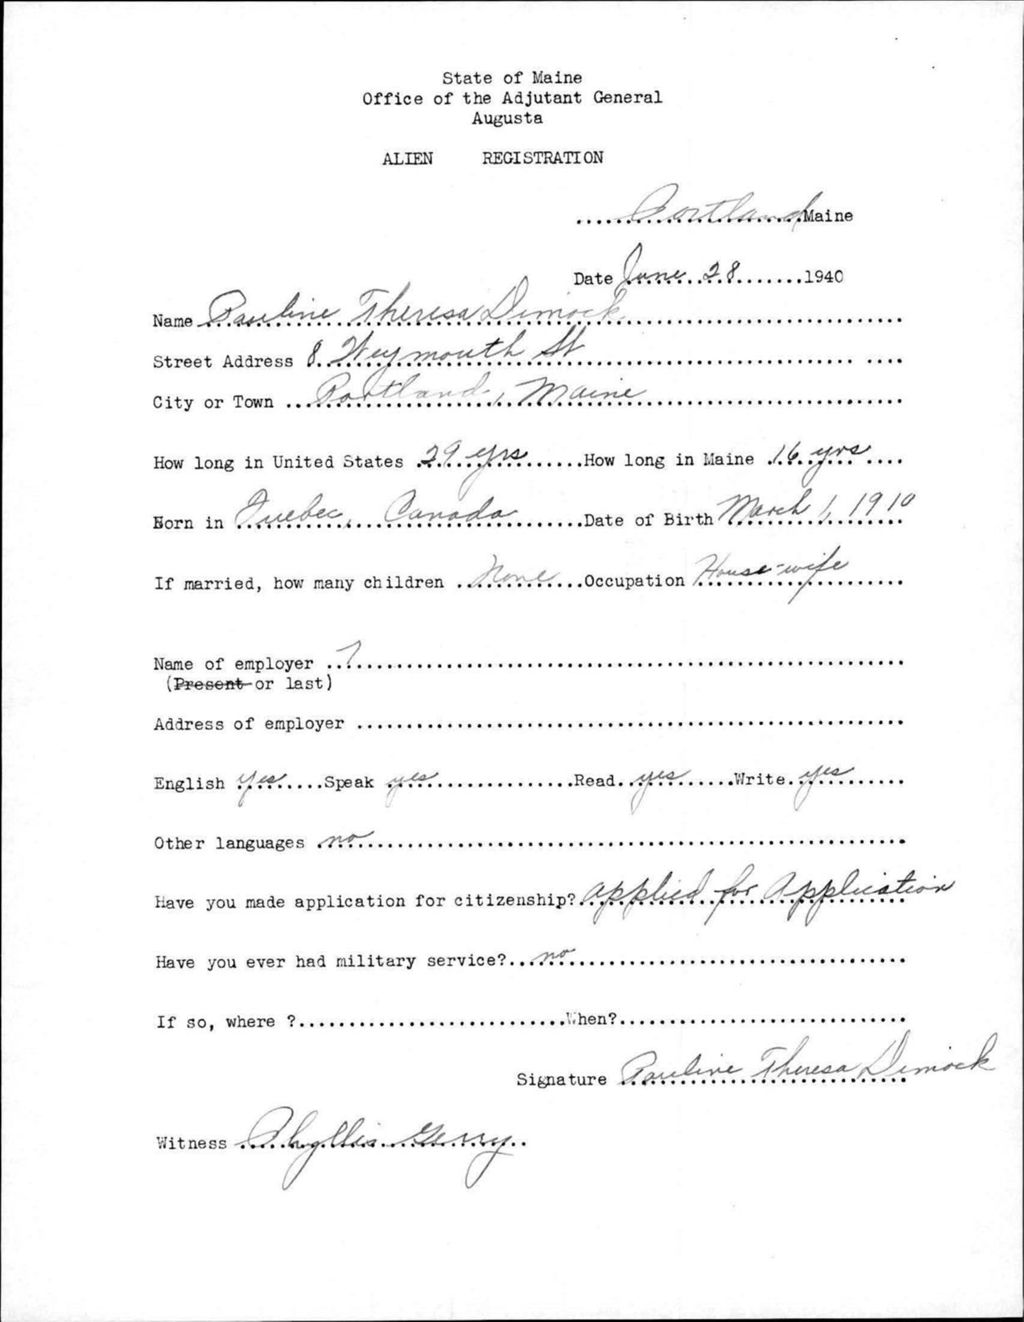 State of Maine
Office of the Adjutant General
Augusta
ALIEN REGISTRATION
Portland Maine
Date June 28 1940
Name Pauline Theresa Dimock
Street Address 8 Weymouth St
City or Town Portland, Maine
How long in United States 29 yrs How long in Maine 16 yrs
Born in Quebec, Canada Date of Birth March 1, 1910
If married, how many children None Occupation House-wife
Name of employer ?
(Present or last)
Address of employer
English Yes Speak yes Read yes Write yes
Other languages no
Have you made application for citizenship? Applied for Application
Have you ever had military service? no
If so, where ? When?
Signature Pauline Theresa Dimock
Witness Phyllis Gerry